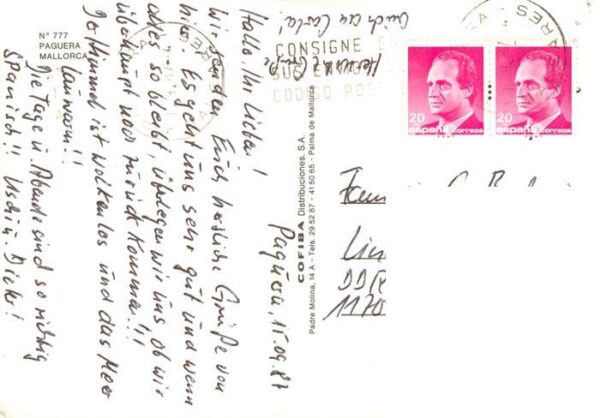 N° 777
PAGUERA
MALLORCA
Paguera, 15.09.87
Hallo, Ihr Lieben!
wir senden Euch herzliche Grüße von
hier. Es geht uns sehr gut und wenn
alles so bleibt, überlegen wir uns, ob wir
überhaupt noch zurück kommen!!!
Der Himmel ist wolkenlos und das Meer
lauwarm!!
Die Tage u. Abende sind so richtig
Spanisch!! Uschi u. Dieter!
Auch an Carla!
Grüße
COFIBA Distribuciones, S.A.
Padre Molina, 14 A - Tels. 29 52 87 - 41 50 65 - Palma de Mallorca
CONSIGNE
CODIGO POS
20
españa correos
20
españa correos
DDR
1170